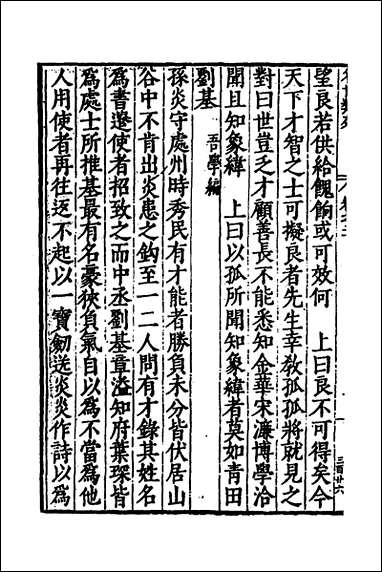 望良若供給餽餉或可效何　上曰良不可得矣今
天下才智之士可擬良者先生幸教孤孤將就見之
對曰世豈乏才顧善長不能悉知金華宋濂博學洽
聞且知象緯　上曰以孤所聞知象緯者莫如青田
劉基　吾學編
孫炎守處州時秀民有才能者勝負未分皆伏居山
谷中不肯出炎患之鈎至一二人問有才錄其姓名
爲書遣使者招致之而中丞劉基章溢知府葉琛皆
爲處士所推基最有名豪俠負氣自以爲不當爲他
人用使者再往返不起以一寳劔送炎炎作詩以爲
三百廿六